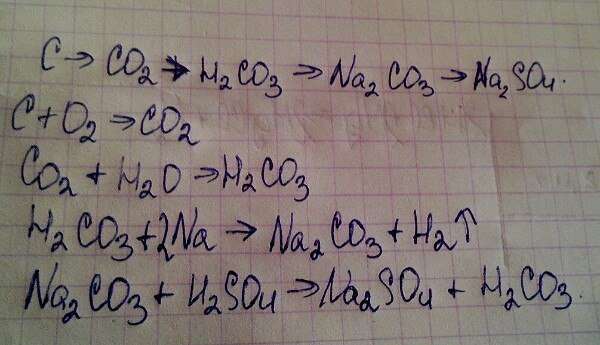 C → CO₂ → H₂CO₃ → Na₂CO₃ → Na₂SO₄.
C + O₂ → CO₂
CO₂ + H₂O → H₂CO₃
H₂CO₃ + 2Na → Na₂CO₃ + H₂↑
Na₂CO₃ + H₂SO₄ → Na₂SO₄ + H₂CO₃.